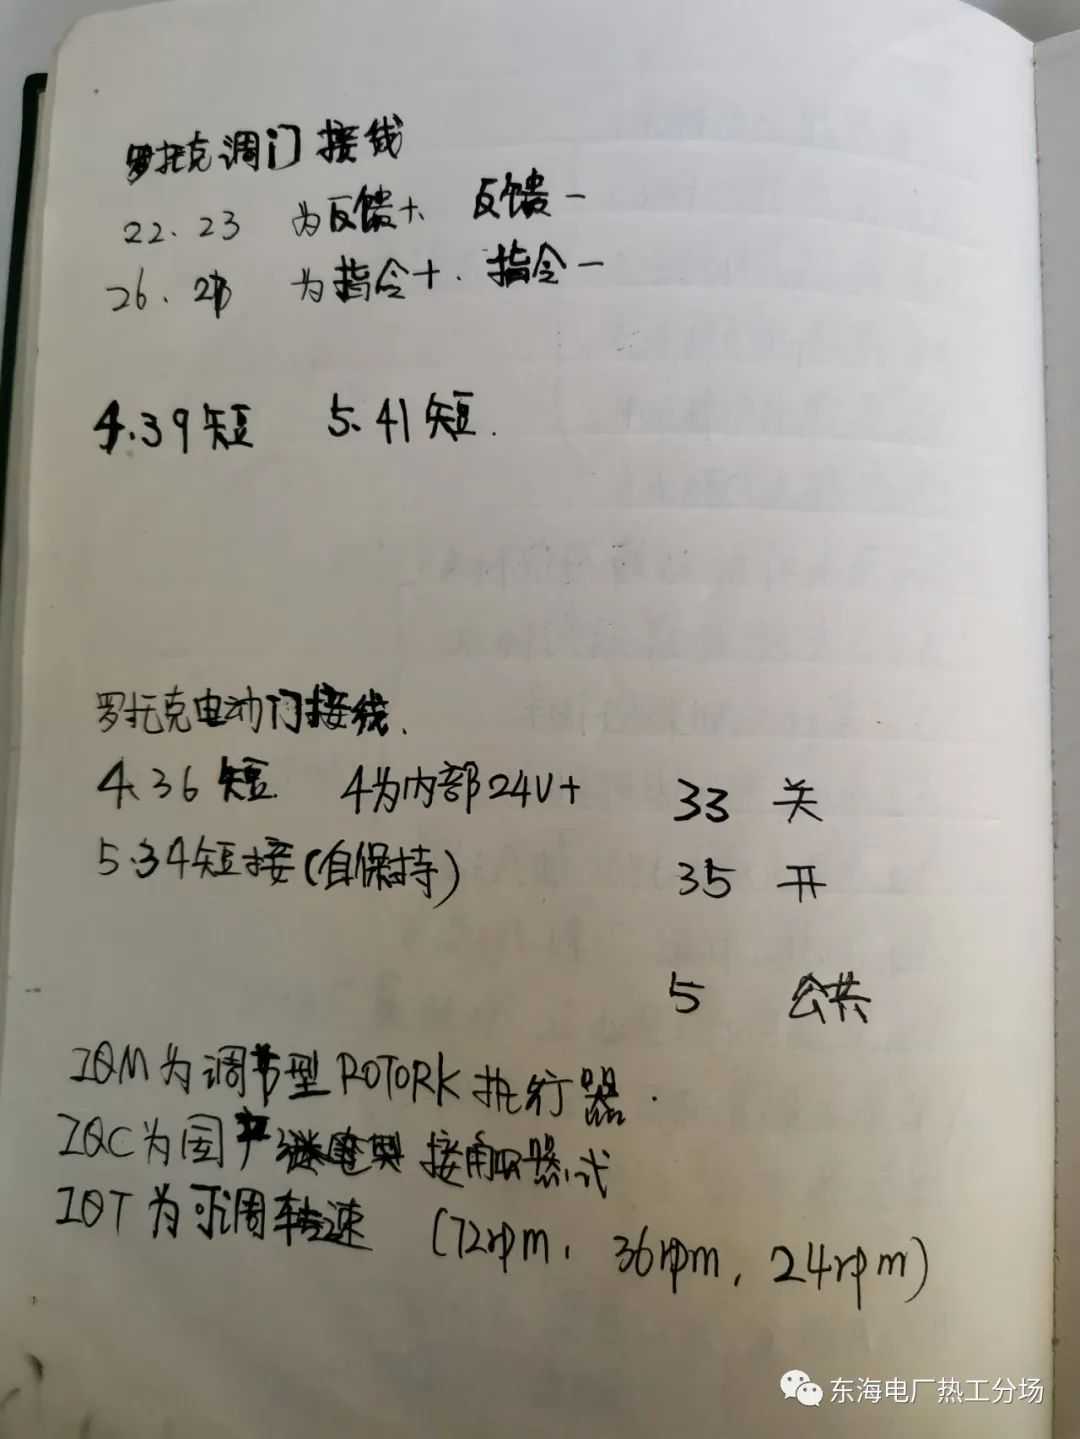 罗托克调门接线
22、23 为反馈+、反馈-
26、27 为指令+、指令-
4、39短 5、41短.
罗托克电动门接线、
4、36短 4为内部24V+ 33 关
5、34短接(自保持) 35 开
5 公共
IQM为调节型ROTORK执行器.
IQC为国产 接触器式
IQT为可调转速 (72rpm, 36rpm, 24rpm)
东海电厂热工分场